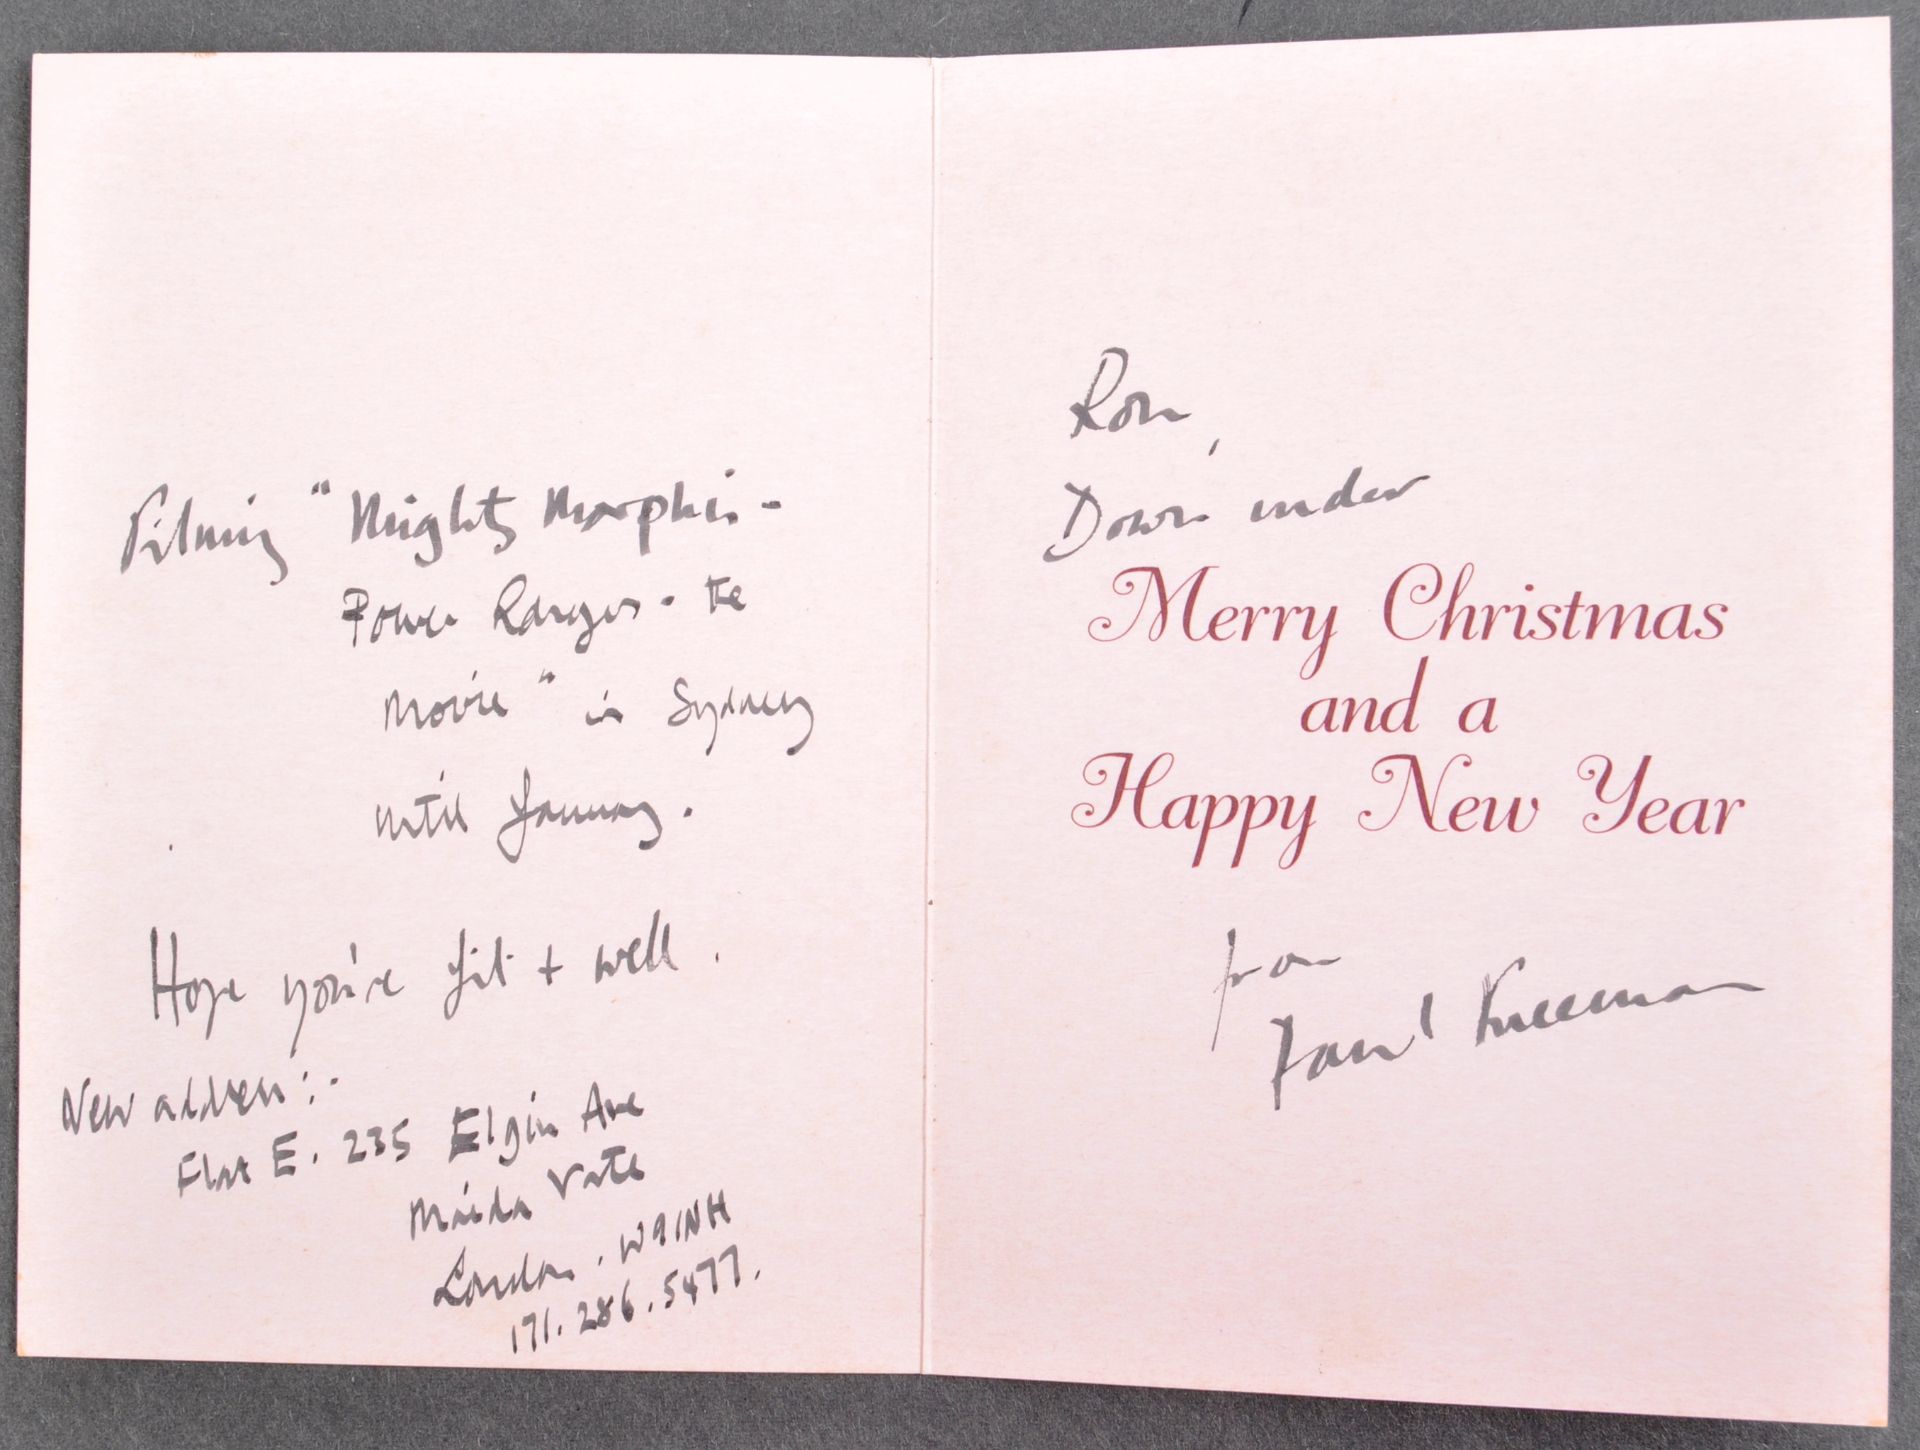 Filming "Mighty Morphin -
Power Rangers - the
Movie" in Sydney
until January.
Hope you're fit + well.
New address:-
Flat E. 235 Elgin Ave
Maida Vale
London. W9 1NH
171.286.5477.
Ron,
Down under
Merry Christmas
and a
Happy New Year
from
Paul Freeman